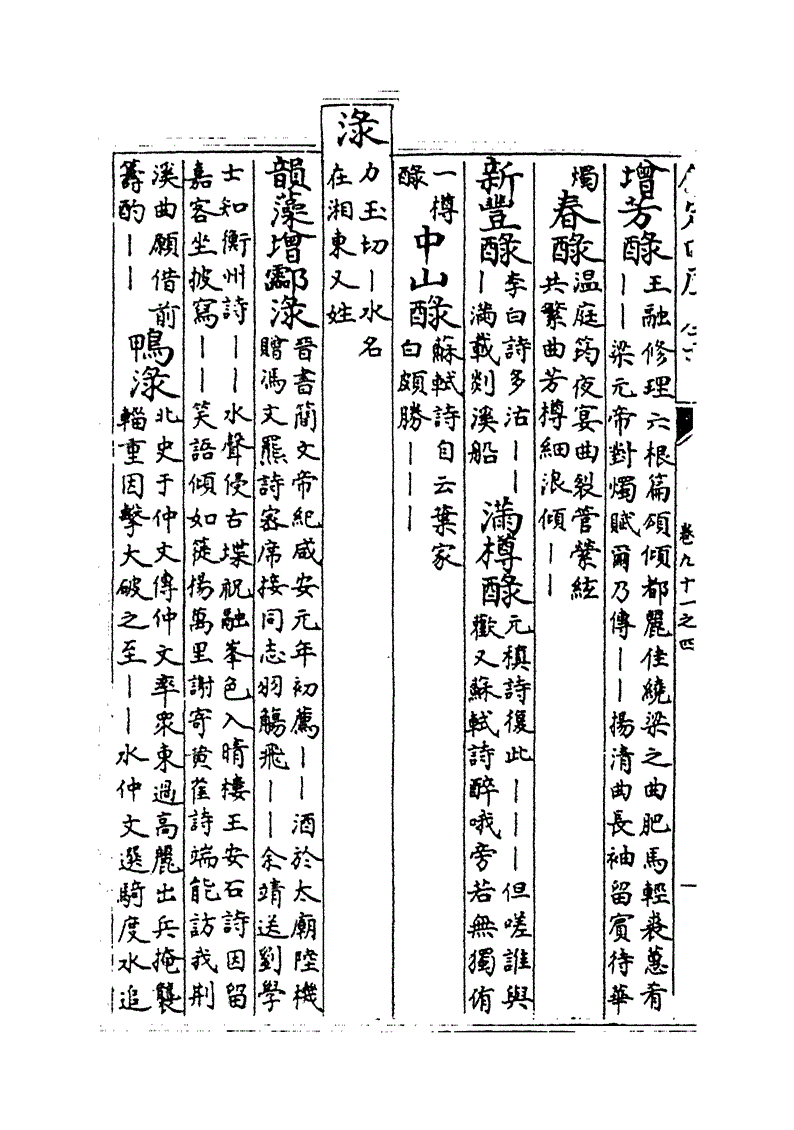 卷九十一之四
增芳醁 王融修理六根篇頌傾都麗佳繞梁之曲肥馬輕裘蕙肴
——梁元帝對燭賦爾乃傳——揚清曲長袖留賓待華
燭 春醁 温庭筠夜宴曲裂管縈絃
共繁曲芳樽細浪傾——
新豐醁 李白詩多沽——
—滿載剡溪船 滿樽醁 元稹詩復此———但嗟誰與
歡又蘇軾詩醉哦旁若無獨侑
一樽
醁 中山醁 蘇軾詩自云葉家
白頗勝———
淥 力玉切—水名
在湘東又姓
韻藻增酃淥 晉書簡文帝紀咸安元年初薦——酒於太廟陸機
贈馮文羆詩密席接同志羽觴飛——余靖送劉學
士知衡州詩——水聲侵古堞祝融峯色入晴樓王安石詩因留
嘉客坐披寫——笑語傾如簁揚萬里謝寄黄雀詩端能訪我荆
溪曲願借前
籌酌—— 鴨淥 北史于仲文傳仲文率衆東過高麗出兵掩襲
輜重因擊大破之至——水仲文選騎度水追